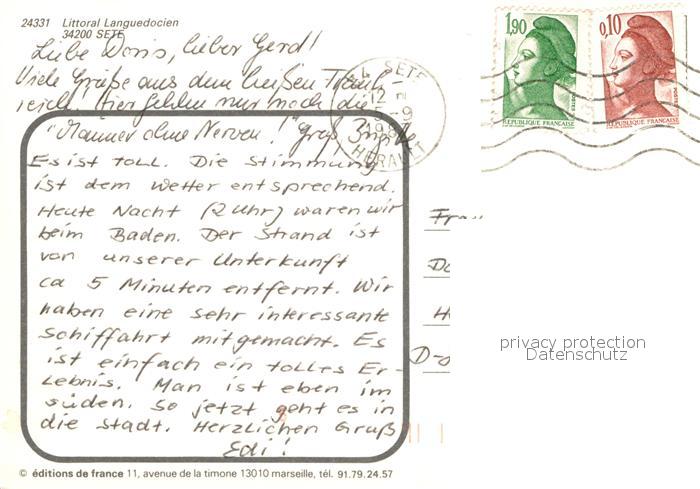 24331 Littoral Languedocien
34200 SETE
Liebe Doris, lieber Gerd!
Viele Grüße aus dem heißen Frank-
reich. Hier fehlen nur noch die
"Männer ohne Nerven!" Gruß
Es ist toll. Die Stimmung
ist dem Wetter entsprechend.
Heute Nacht (2 Uhr) waren wir
beim Baden. Der Strand ist
von unserer Unterkunft
ca 5 Minuten entfernt. Wir
haben eine sehr interessante
Schiffahrt mitgemacht. Es
ist einfach ein tolles Er-
lebnis. Man ist eben im
Süden. So jetzt geht es in
die Stadt. Herzlichen Gruß
Edi!
© éditions de france 11, avenue de la timone 13010 marseille, tél. 91.79.24.57
SETE
12
HERAULT
1,90
REPUBLIQUE FRANÇAISE
POSTES
0,10
REPUBLIQUE FRANÇAISE
POSTES
Fra
Do
H
D-
privacy protection
Datenschutz